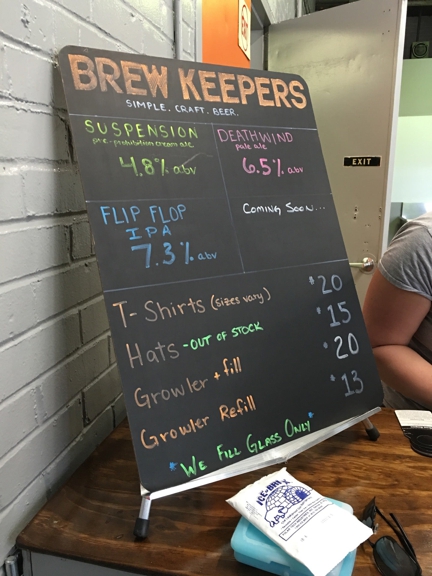 BREW KEEPERS
SIMPLE. CRAFT. BEER.
SUSPENSION
pre-prohibition cream ale
4.8% abv
DEATHWIND
pale ale
6.5% abv
FLIP FLOP
IPA
7.3% abv
COMING SOON...
T-SHIRTS (SIZES VARY) $20
HATS -OUT OF STOCK $15
GROWLER + fill $20
GROWLER REfill $13
*WE FILL GLASS ONLY*
EXIT
ICE-BRIX